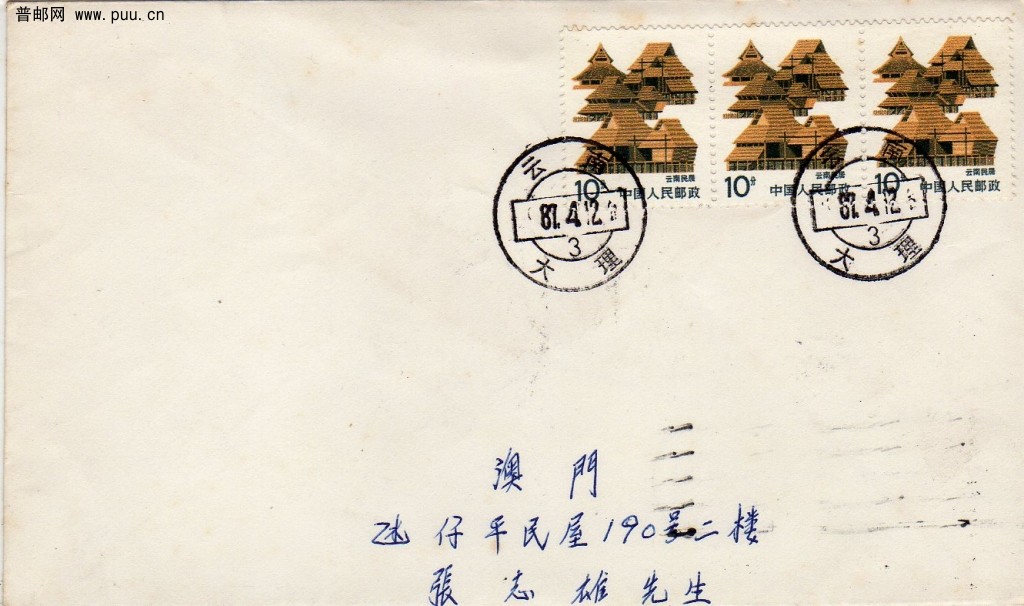 普邮网 www.puu.cn
云南民居
10分 中国人民邮政
云南民居
10分 中国人民邮政
云南民居
10分 中国人民邮政
云南
87.4.12
3
大理
云南
87.4.12
3
大理
澳門
氹仔平民屋190号二楼
張志雄先生